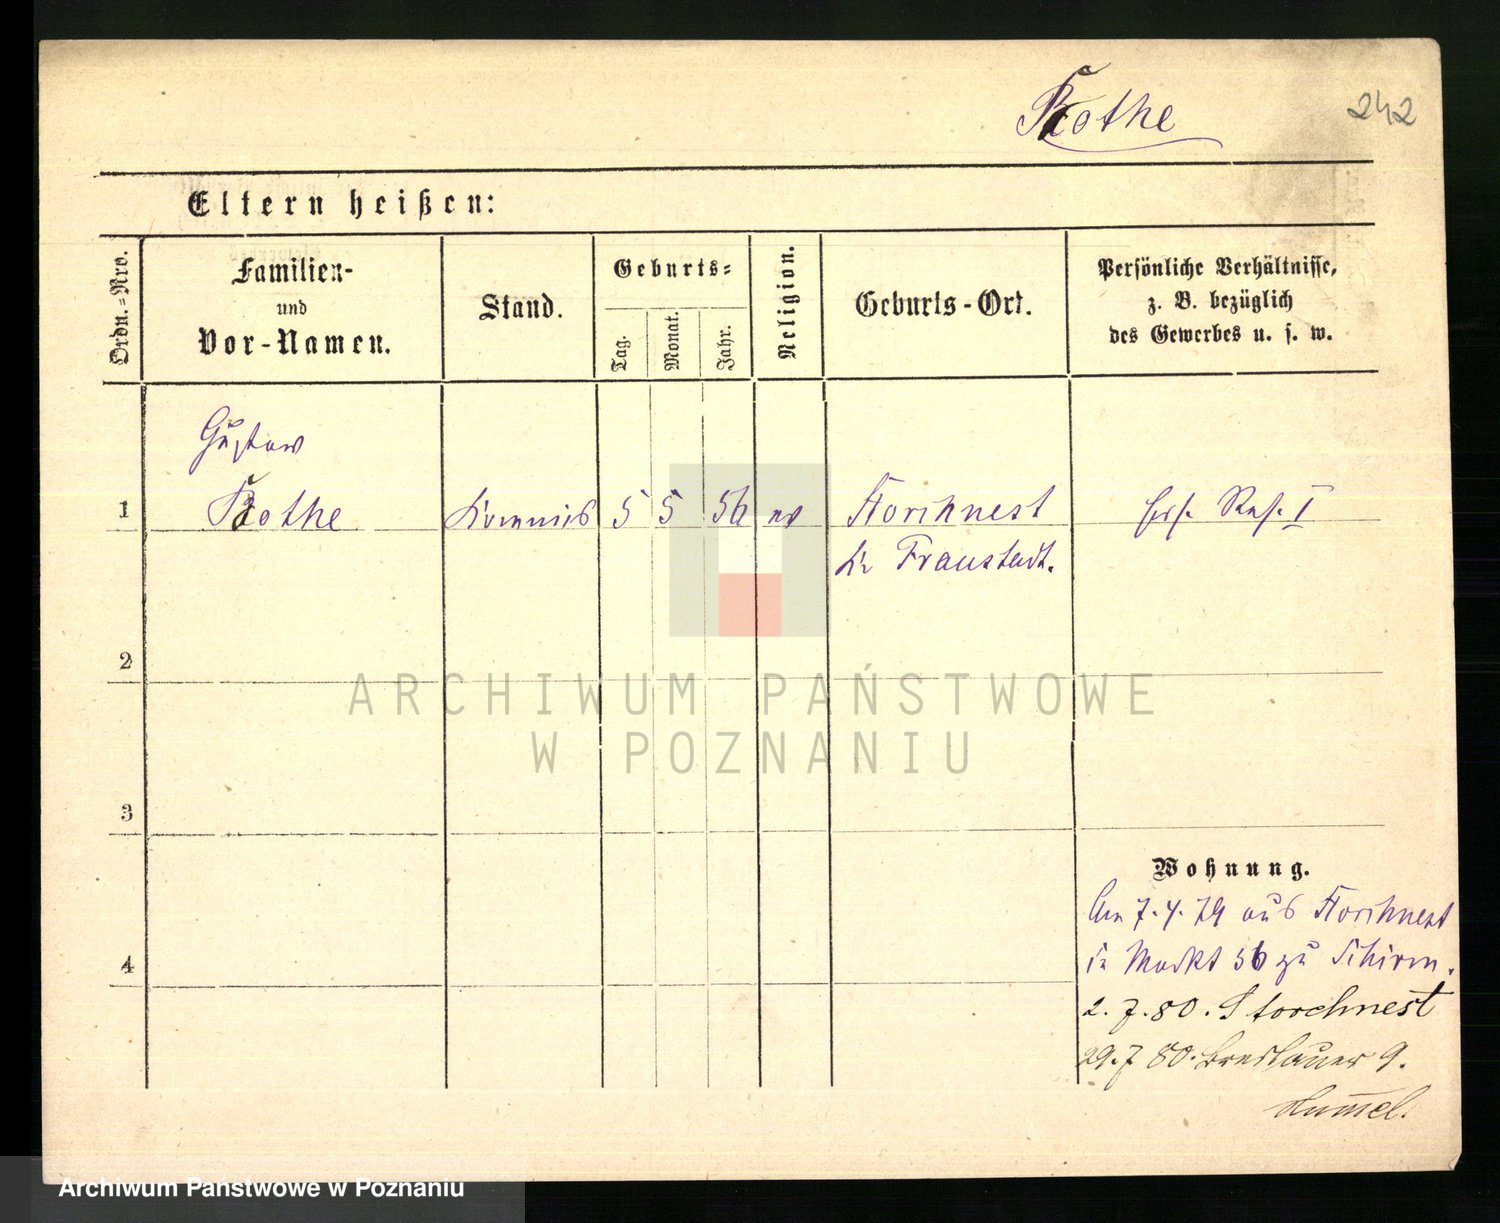 Rothe
242
Eltern heißen:
Ordn.=Nro.
Familien-
und
Vor-Namen.
Stand.
Geburts=
Tag.
Monat.
Jahr.
Religion.
Geburts-Ort.
Persönliche Verhältnisse,
z. B. bezüglich
des Gewerbes u. s. w.
Gustav
1 Rothe Kommis 5 5 56 ev Storchnest Ers. Res. I
Kr Fraustadt.
2
ARCHIWUM PAŃSTWOWE
W POZNANIU
3
Wohnung.
Am 7.4.79 aus Storchnest
in Markt 56 zu Schirm.
4
2.7.80. Storchnest
29.7 80. Breslauer 9.
Hummel.
Archiwum Państwowe w Poznaniu